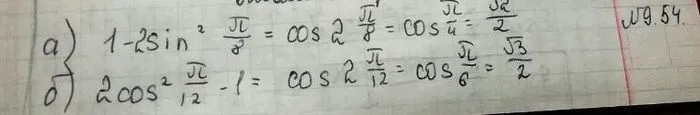 №9.54.
а) 1-2sin² π/8 = cos 2 π/8 = cos π/4 = √2/2
б) 2cos² π/12 - 1 = cos 2 π/12 = cos π/6 = √3/2